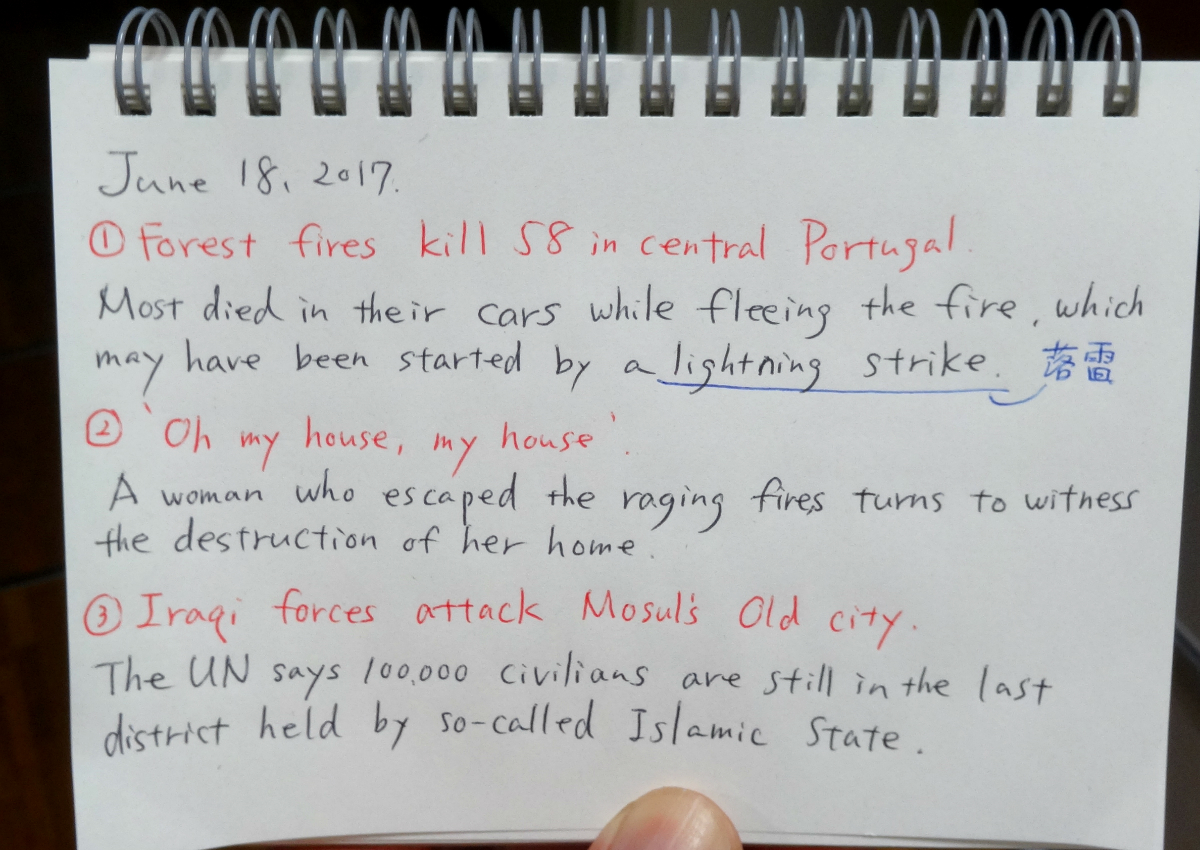 June 18, 2017.
① Forest fires kill 58 in central Portugal.
Most died in their cars while fleeing the fire, which
may have been started by a lightning strike. 落雷
② 'Oh my house, my house'.
A woman who escaped the raging fires turns to witness
the destruction of her home.
③ Iraqi forces attack Mosul's Old city.
The UN says 100,000 civilians are still in the last
district held by so-called Islamic State.